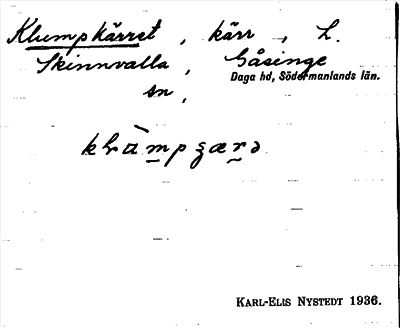 Klumpkärret, kärr, L.
Skinnvalla, Gåsinge
Daga hd, Södermanlands län.
sn,
KARL-ELIS NYSTEDT 1936.